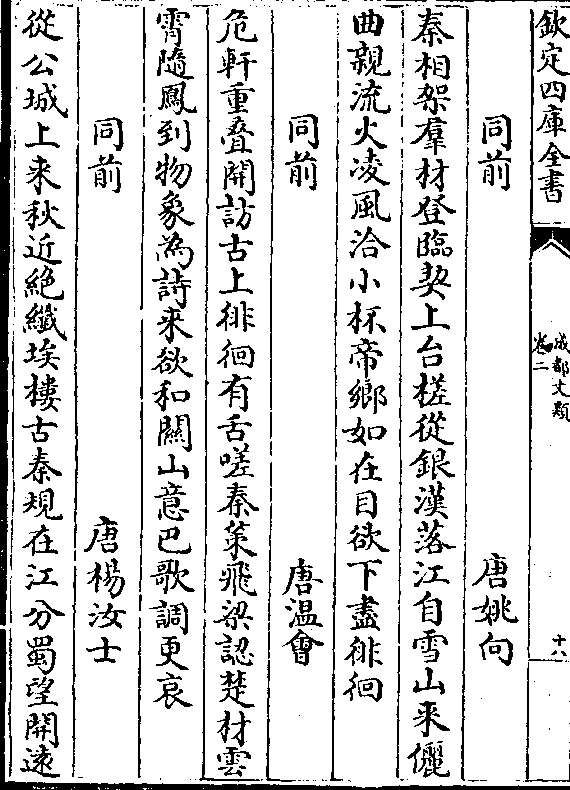 欽定四庫全書
成都文類
卷二
十八
同前 唐姚向
秦相架羣材登臨契上台槎從銀漢落江自雪山来儷
曲親流火凌風洽小杯帝鄉如在目欲下盡徘徊
同前 唐温會
危軒重疊開訪古上徘徊有舌嗟秦策飛梁認楚材雲
霄隨鳳到物象為詩来欲和關山意巴歌調更哀
同前 唐楊汝士
從公城上来秋近絶纖埃樓古秦規在江分蜀望開遠